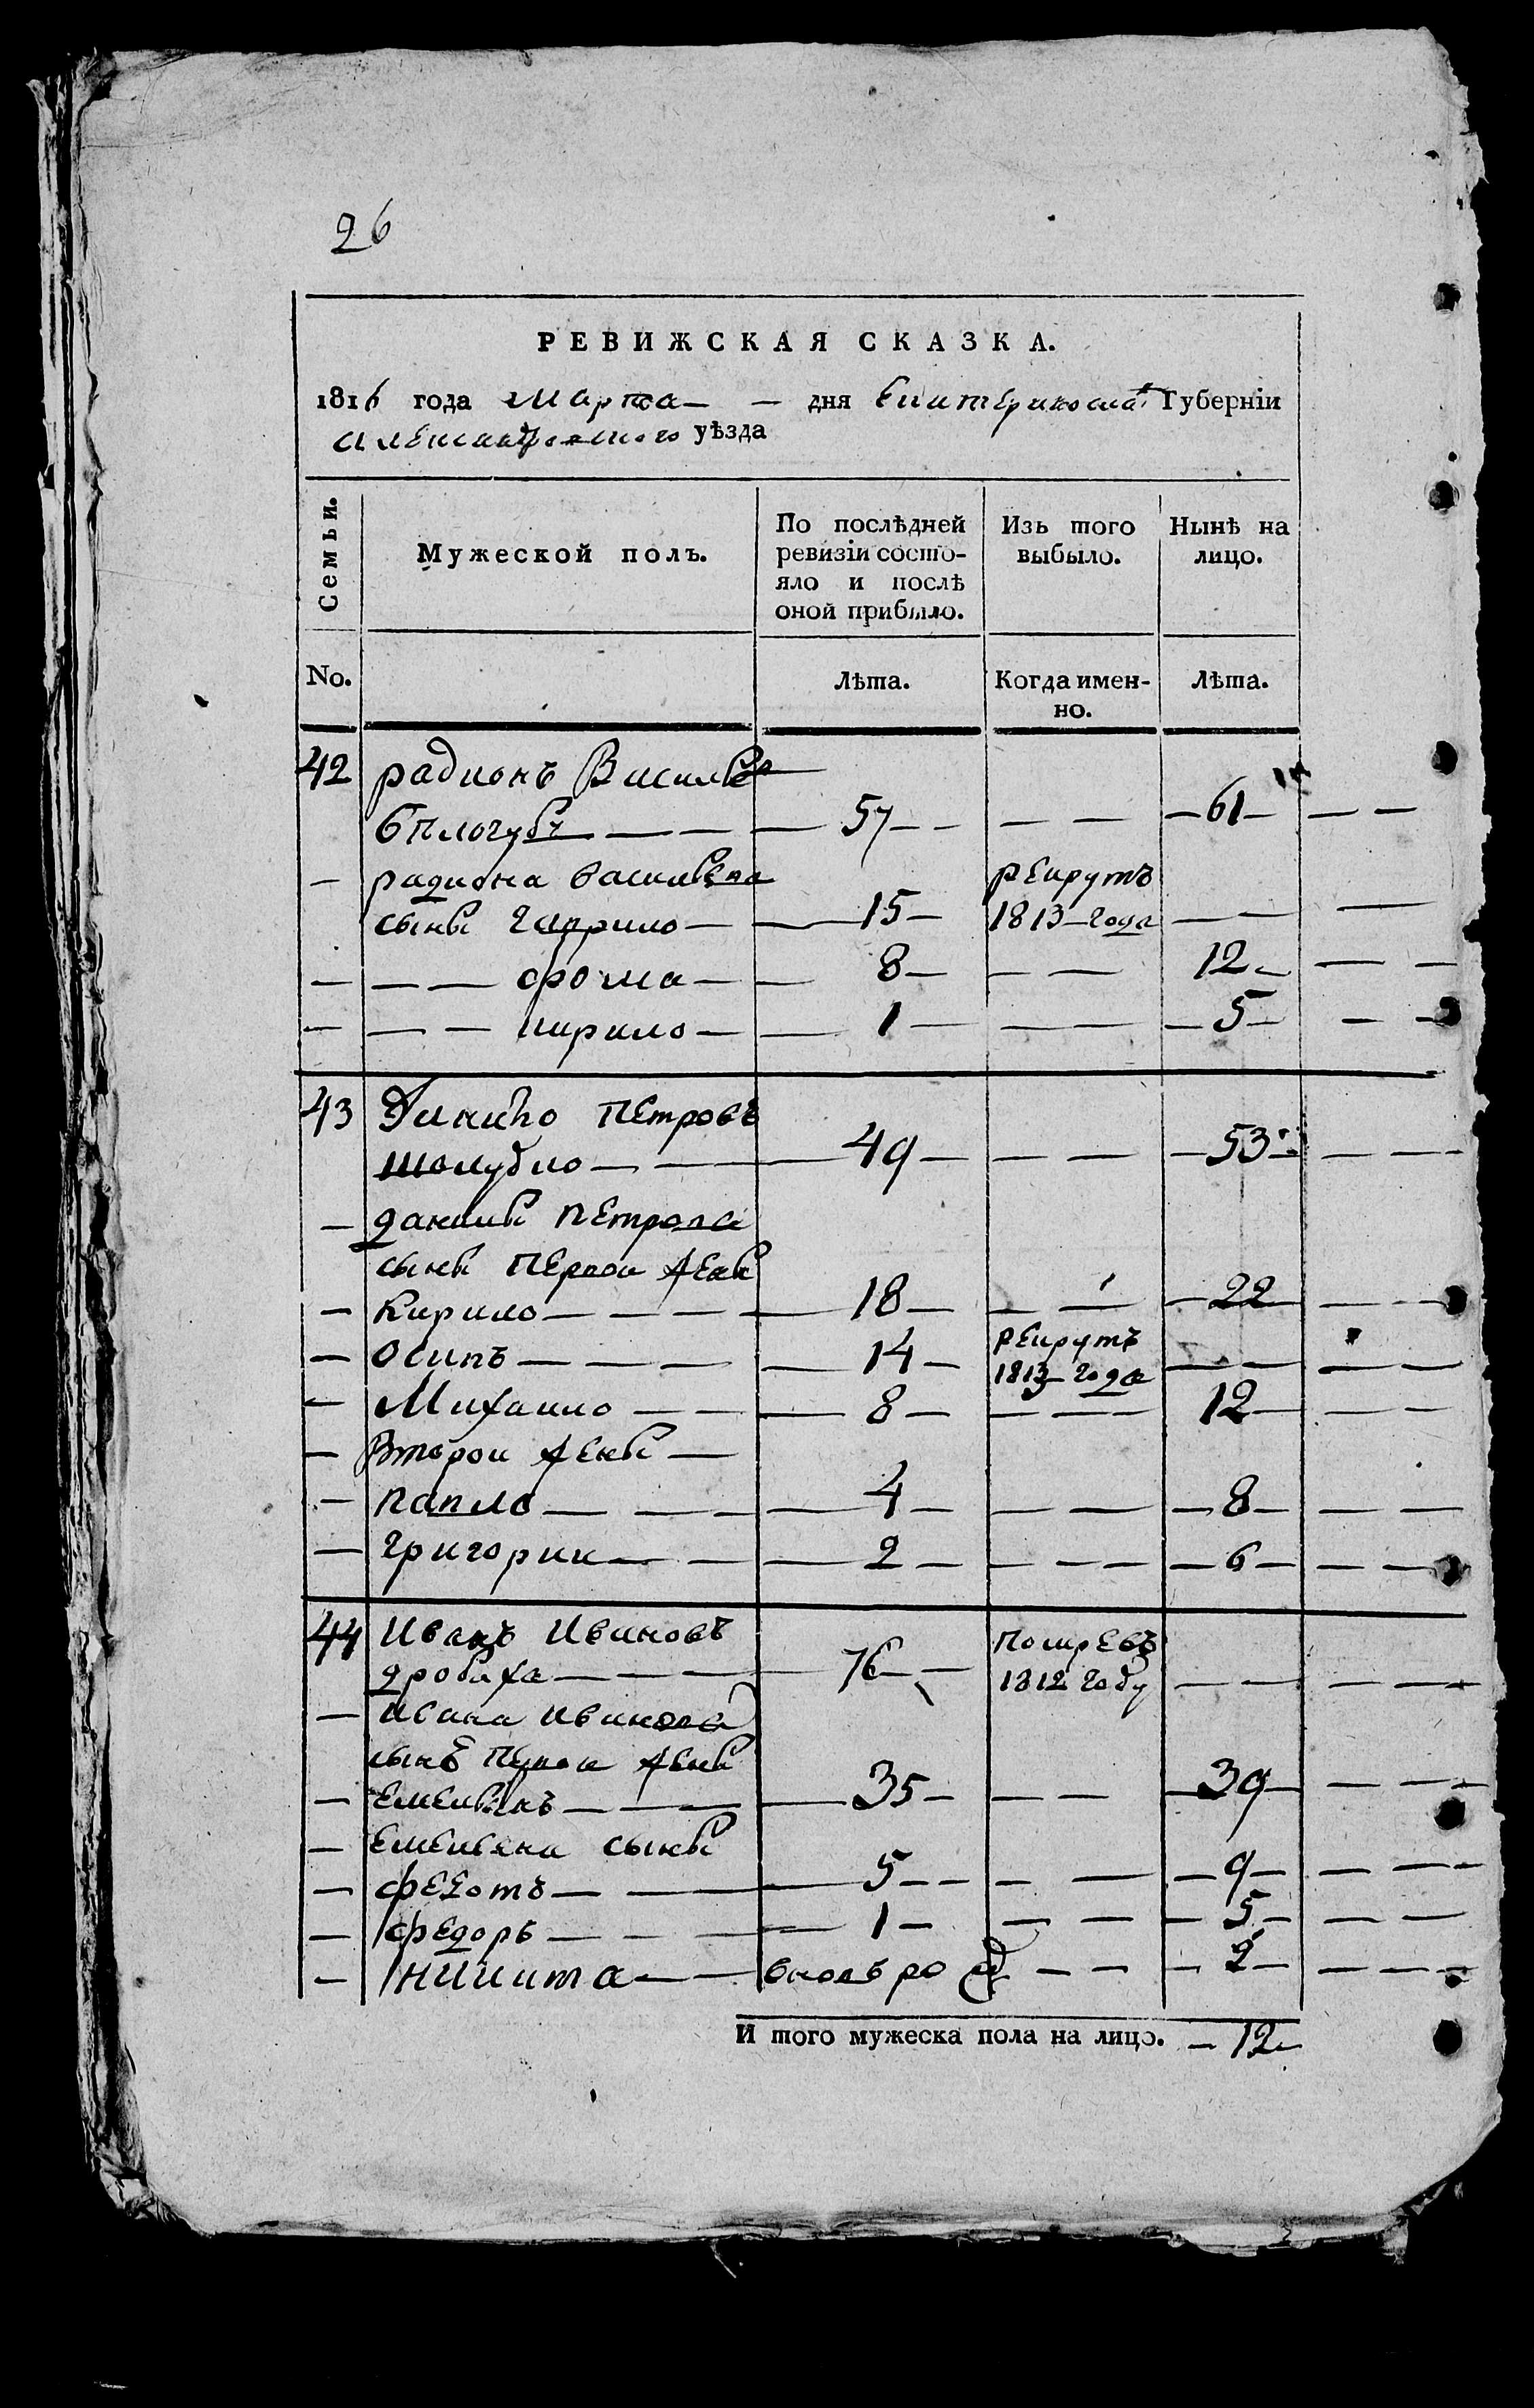 26
РЕВИЖСКАЯ СКАЗКА.
1816 года Марта — — дня Екатериносла Губерніи
Александровского уѣзда
Семьи.
Мужеской полъ.
По послѣдней ревизіи состояло и послѣ оной прибыло.
Изъ того выбыло.
Нынѣ на лицо.
No.
Лѣта.
Когда именно.
Лѣта.
42 радионъ Васильевъ
бѣлогубъ — — 57 — — — — 61 — — —
— радиона васильева рекрутъ
сынъ гаврило — — 15 — 1813 года — — —
— — — фома — — 8 — — — 12 — — —
— — — кирило — — 1 — — — 5 — — —
43 Данило Петровъ
шолудко — — — 49 — — — — 53 — — —
— данилы Петрова
сыны Первой жены
— Кирило — — — 18 — — — — 22 — — —
— Осипъ — — — 14 — рекрутъ 1813 года — — — —
— Михаило — — — 8 — — — 12 — — —
— Второй жены —
— павло — — — 4 — — — — 8 — — —
— григорий — — — 2 — — — — 6 — — —
44 Иванъ Ивановъ помре въ
дробаха — — — 76 — 1812 году — — — —
— Ивана Иванова
сынъ Первой жены
— Емельянъ — — — 35 — — — 39 — — —
— Емельяна сыны
— федотъ — — — 5 — — — — 9 — — —
— федоръ — — — 1 — — — — 5 — — —
— никита — — вновь ро — — — 2 — — —
И того мужеска пола на лицо. — 12 —